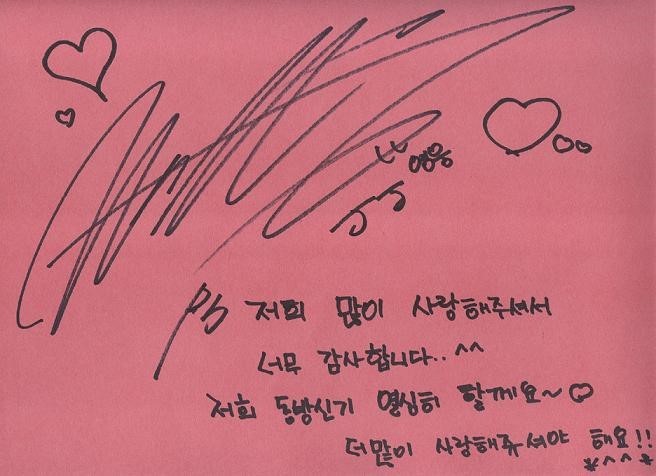 영웅
PS 저희 많이 사랑해주셔서
너무 감사합니다.. ^^
저희 동방신기 열심히 할께요~♡
더많이 사랑해주셔야 해요!!
*^^*